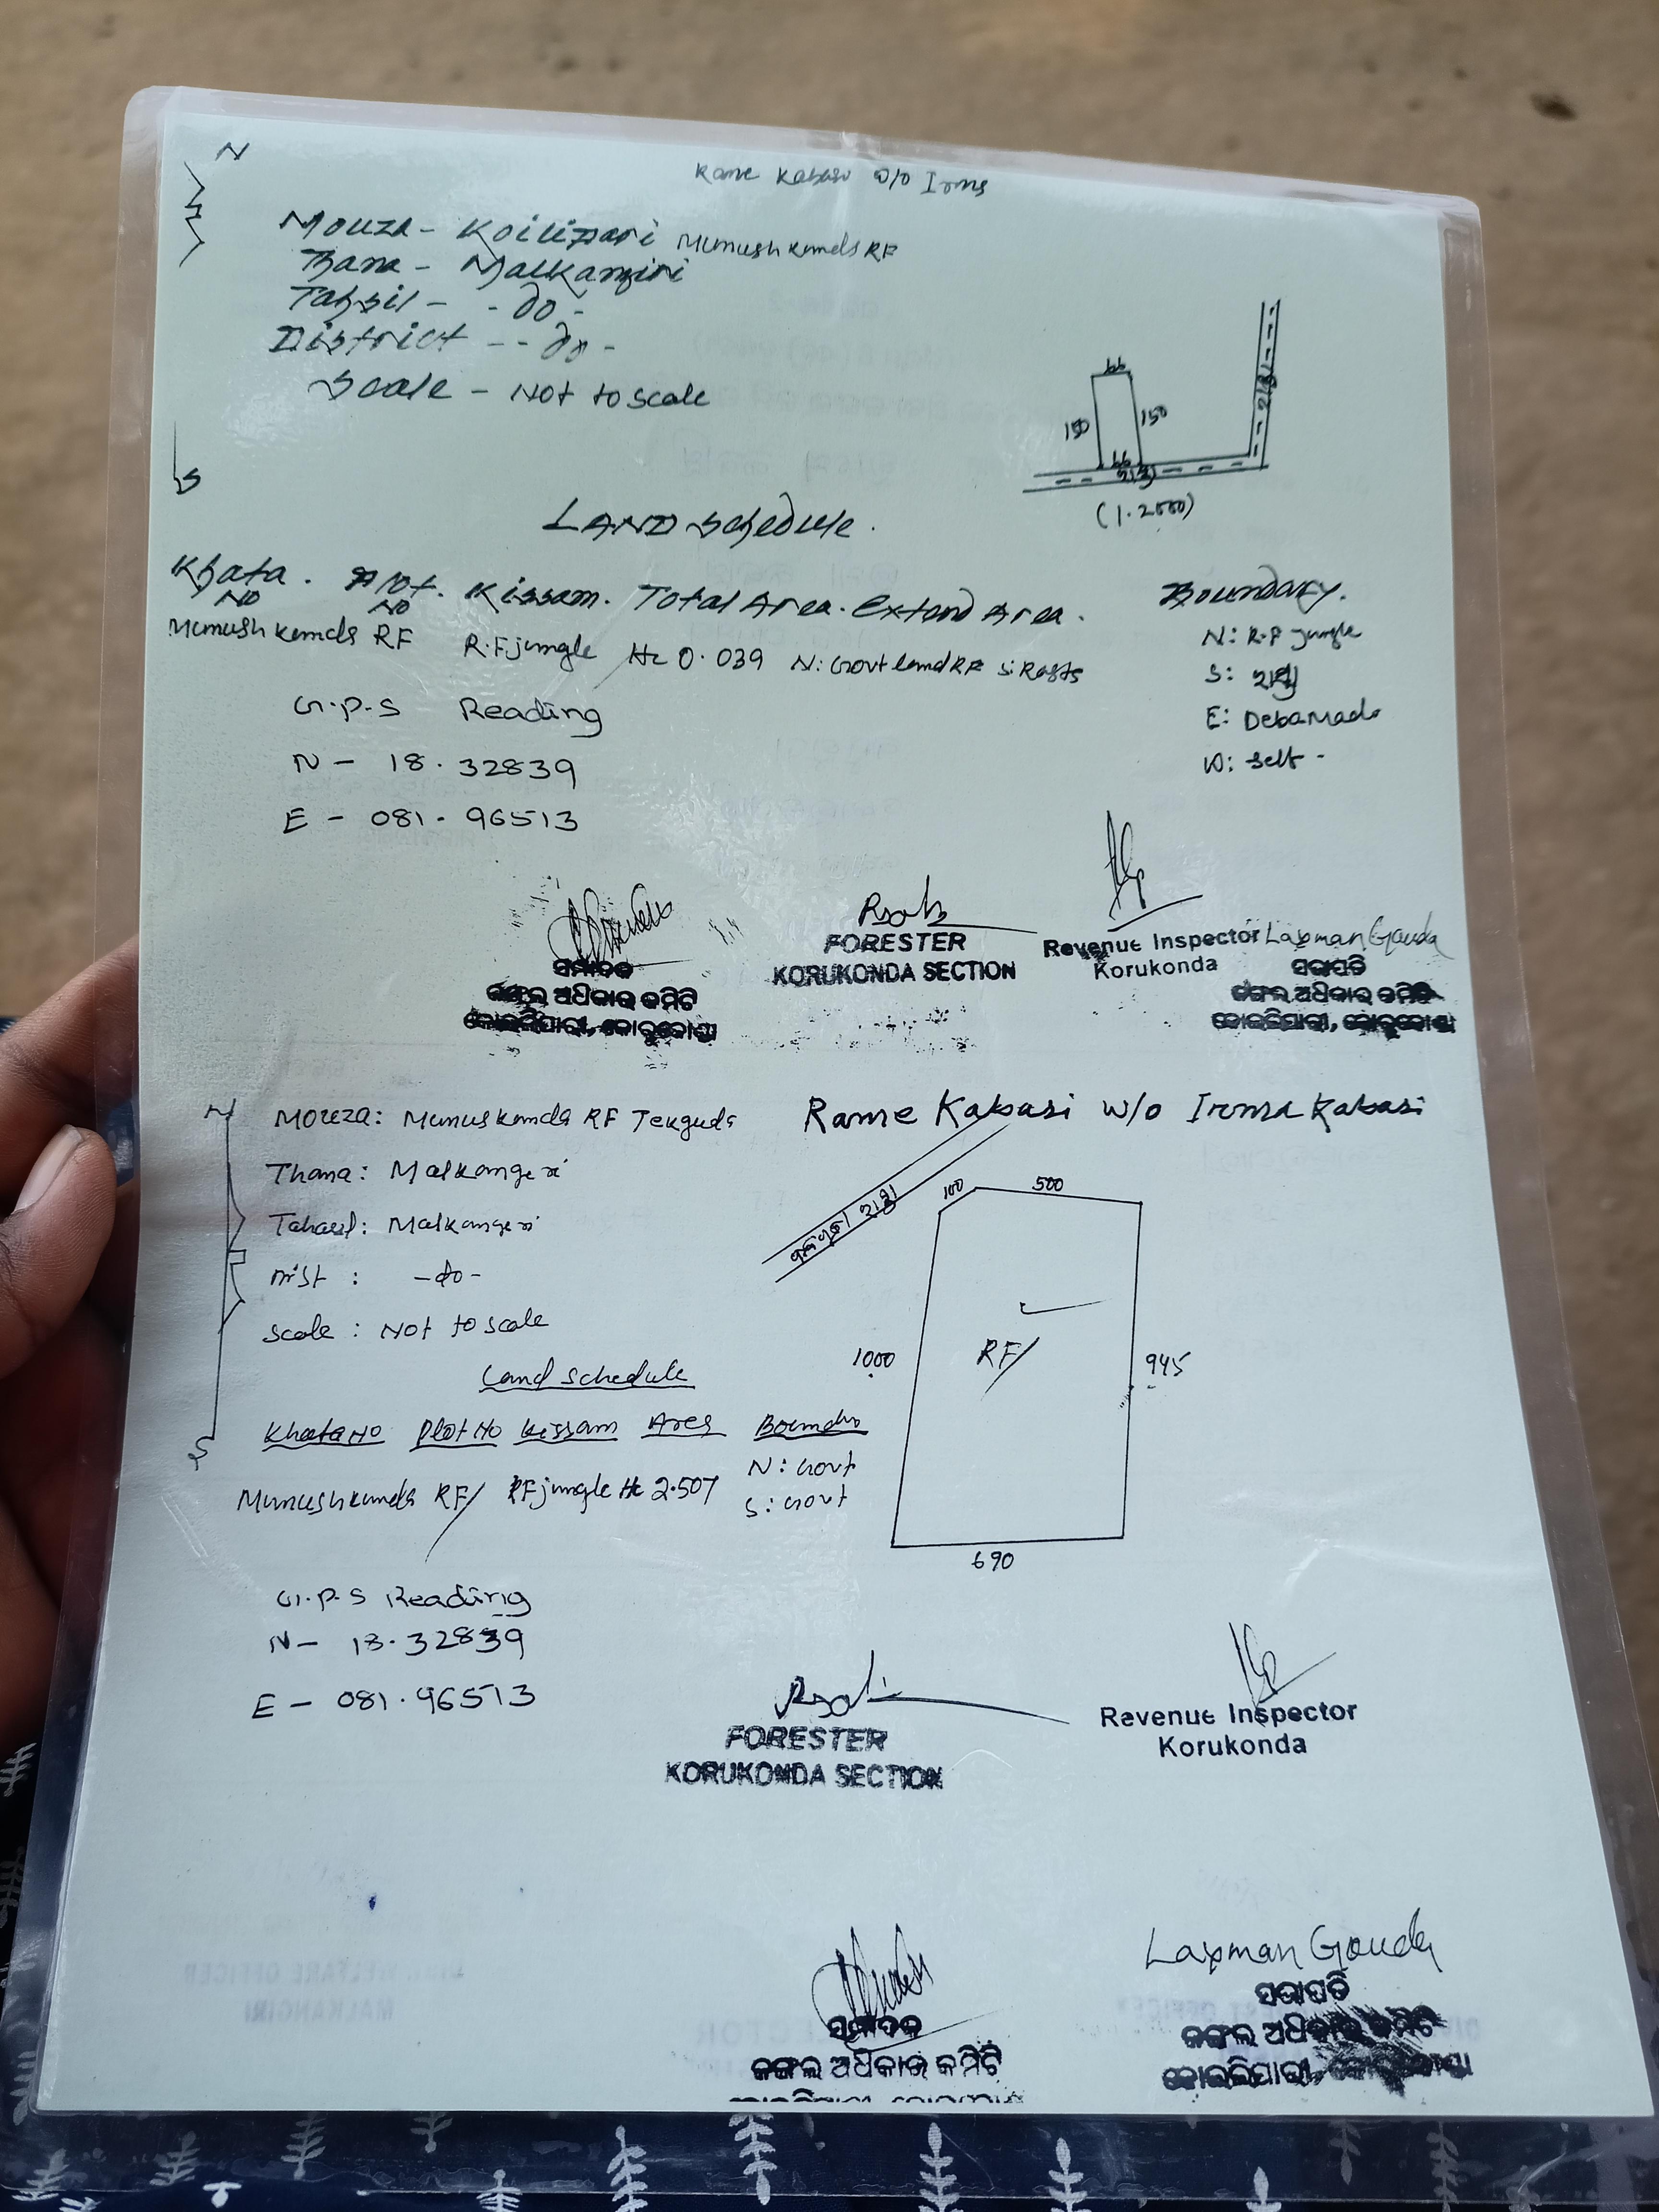 N
Rame Kabasi w/o Irma
Mouza - Koilipari Munushkonda RF
Thana - Malkangiri
Tahsil - - do -
District - - do -
Scale - Not to scale
S
66
150
150
66
ରାସ୍ତା
ରାସ୍ତା
(1.2000)
LAND Schedule.
Khata. Plot. Kissam. Total Area. Extend Area. Boundary.
NO NO
Munushkonda RF R.F jungle Hc 0.039 N: Govt land RF S: Rasta
N: R.F jungle
S: ରାସ୍ତା
E: Deba Madi
W: Self -
G.P.S Reading
N - 18.32839
E - 081.96513
FORESTER
KORUKONDA SECTION
Revenue Inspector
Korukonda
Laxman Gouda
ସମ୍ପାଦକ
ଜଙ୍ଗଲ ଅଧିକାର କମିଟି
କୋଇଲିପାରୀ, କୋରୁକୋଣ୍ଡା
ସଭାପତି
ଜଙ୍ଗଲ ଅଧିକାର କମିଟି
କୋଇଲିପାରୀ, କୋରୁକୋଣ୍ଡା
N
Mouza: Munuskonda RF Tekguda
Rame Kabasi w/o Irma Kabasi
Thana: Malkangiri
Tahasil: Malkangiri
Dist : - do -
Scale : Not to scale
S
ରାସ୍ତା
100
500
1000
RF/
945
690
Land schedule
Khata No Plot No Kissam Area Boundry
Munushkonda RF/ RF jungle Hc 2.507
N: Govt
S: Govt
G.P.S Reading
N - 18.32839
E - 081.96513
FORESTER
KORUKONDA SECTION
Revenue Inspector
Korukonda
Laxman Gouda
ସମ୍ପାଦକ
ଜଙ୍ଗଲ ଅଧିକାର କମିଟି
ସଭାପତି
ଜଙ୍ଗଲ ଅଧିକାର କମିଟି
କୋଇଲିପାରୀ, କୋରୁକୋଣ୍ଡା